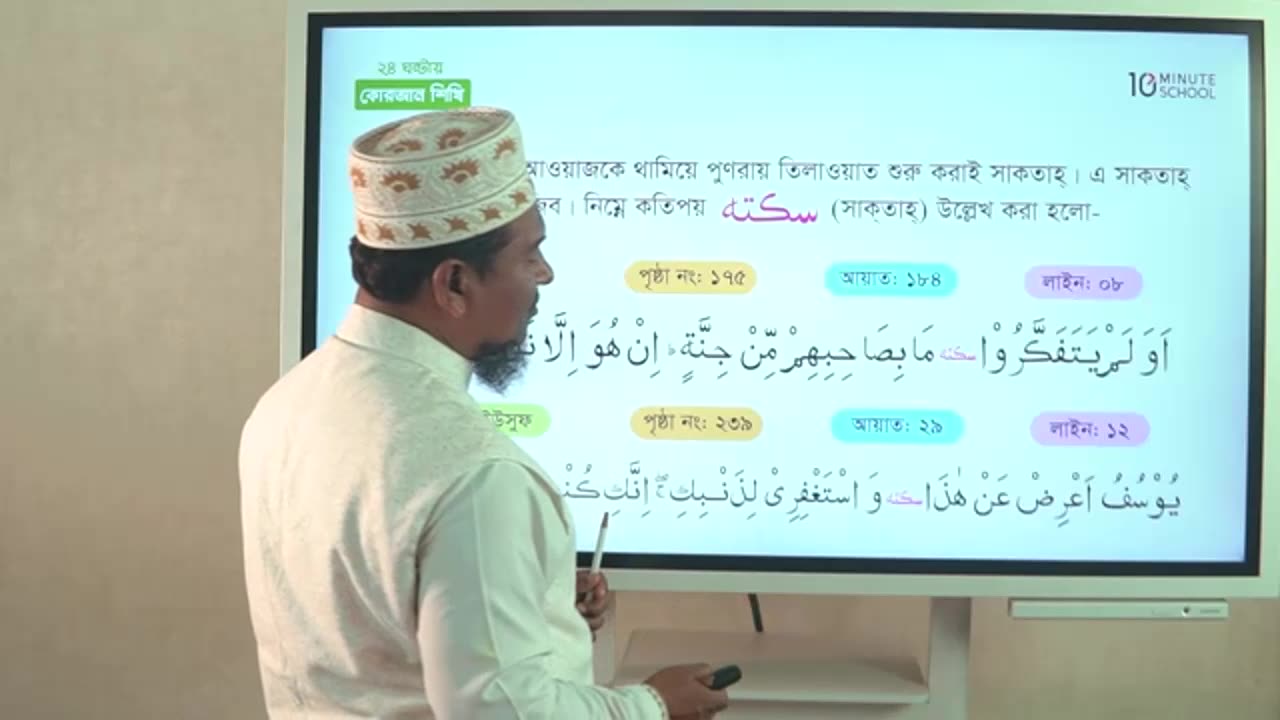 ২৪ ঘন্টায়
কোরআন শিখি
10 MINUTE SCHOOL
আওয়াজকে থামিয়ে পুণরায় তিলাওয়াত শুরু করাই সাকতাহ্। এ সাকতাহ্
নিম্নে কতিপয় سكته (সাক্‌তাহ্) উল্লেখ করা হলো-
পৃষ্ঠা নং: ১৭৫ আয়াত: ১৮৪ লাইন: ০৮
اَوَ لَمْ يَتَفَكَّرُوْا سكته مَا بِصَاحِبِهِمْ مِّنْ جِنَّةٍ ؕ اِنْ هُوَ اِلَّا
ইউসুফ পৃষ্ঠা নং: ২৩৯ আয়াত: ২৯ লাইন: ১২
يُوْسُفُ اَعْرِضْ عَنْ هٰذَا سكته وَ اسْتَغْفِرِیْ لِذَنْۢبِكِ ۚۖ اِنَّكِ